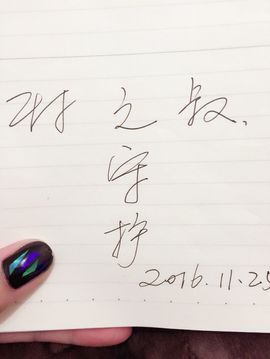 之
守
护
2016.11.25